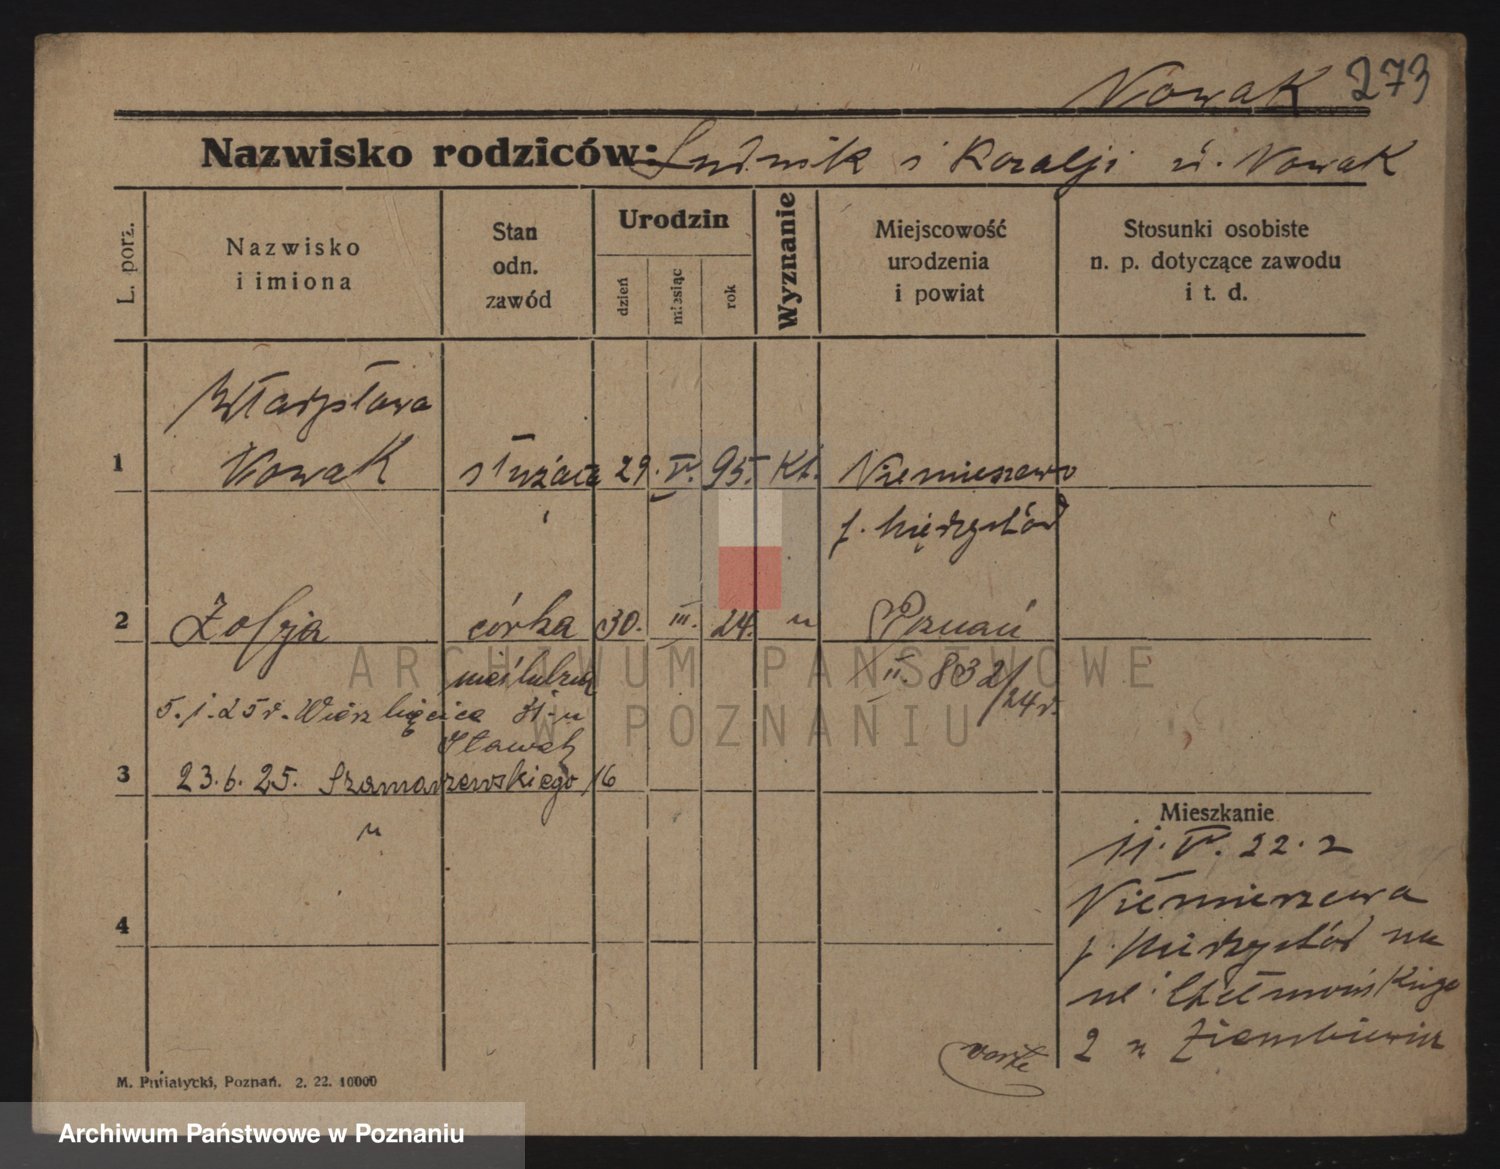 Nowak 273
Nazwisko rodziców: Ludwik i Rozalji u. Nowak
L. porz.
Nazwisko
i imiona
Stan
odn.
zawód
Urodzin
dzień
miesiąc
rok
Wyznanie
Miejscowość
urodzenia
i powiat
Stosunki osobiste
n. p. dotyczące zawodu
i t. d.
Władysława
1 Nowak służąca 29. V. 95. Kt. Niemierzewo
p. Międzychód
2 Zofja córka 30. III. 24. " Poznań
nieślubna II. 832/24r.
5.1.25r. Wierzbięcice
3 23.6.25. Szamarzewskiego 16
"
Mieszkanie
11. V. 22. z
4 Niemierzewa
p. Międzychód na
ul. Chełmońskiego
2 u Ziembiewicz
verte
M. Putiatycki, Poznań. 2. 22. 10000
ARCHIWUM PAŃSTWOWE
W POZNANIU
Archiwum Państwowe w Poznaniu